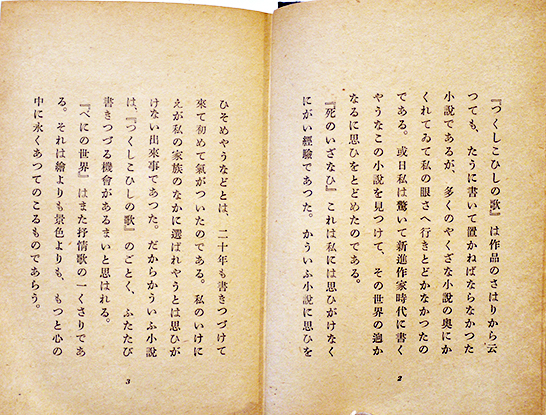 『つくしこひしの歌』は作品のさはりから云
つても、たうに書いて置かねばならなかつた
小説であるが、多くのやくざな小説の奥にか
くれてゐて私の眼さへ行きとどかなかつたの
である。或日私は驚いて新進作家時代に書く
やうなこの小説を見つけて、その世界の迥か
なるに思ひをとどめたのである。
『死のいざなひ』これは私には思ひがけなく
にがい經驗であつた。かういふ小説に思ひを
2
ひそめやうなどとは、二十年も書きつづけて
來て初めて氣がついたのである。私のいけに
えが私の家族のなかに選ばれやうとは思ひが
けない出來事であつた。だからかういふ小説
は、『つくしこひしの歌』のごとく、ふたたび
書きつづる機會があるまいと思はれる。
『べにの世界』はまた抒情歌の一くさりであ
る。それは繪よりも景色よりも、もつと心の
中に永くあつてのこるものであらう。
3